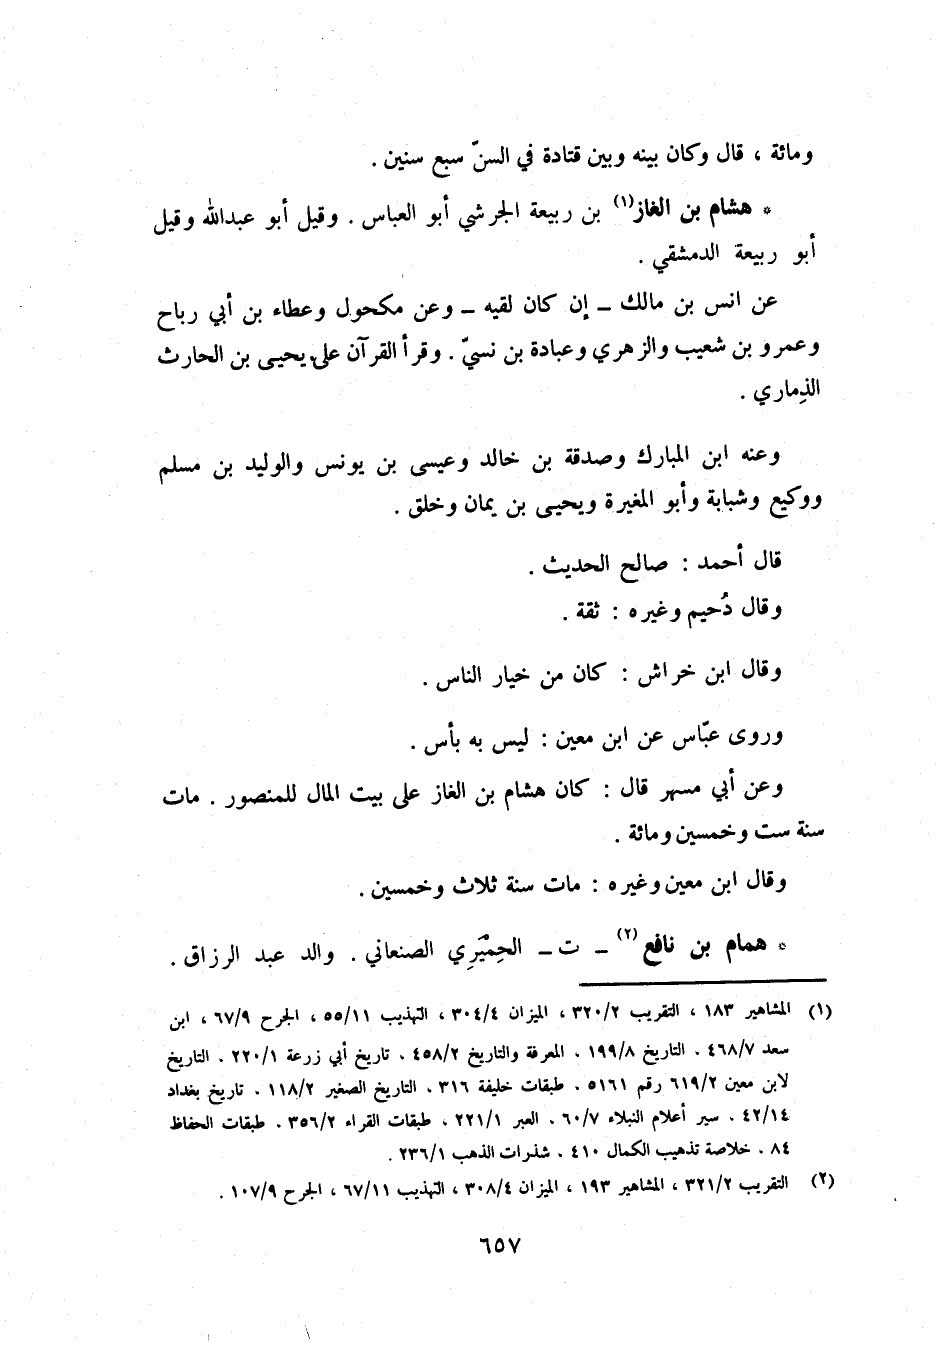 ومائة ، قال وكان بينه وبين قتادة في السنّ سبع سنين .
* هشام بن الغاز(١) بن ربيعة الجرشي أبو العباس . وقيل أبو عبدالله وقيل
أبو ربيعة الدمشقي .
عن انس بن مالك ــ إن كان لقيه ــ وعن مكحول وعطاء بن أبي رباح
وعمرو بن شعيب والزهري وعبادة بن نسيّ . وقرأ القرآن على يحيى بن الحارث
الذِماري .
وعنه ابن المبارك وصدقة بن خالد وعيسى بن يونس والوليد بن مسلم
ووكيع وشبابة وأبو المغيرة ويحيى بن يمان وخلق .
قال أحمد : صالح الحديث .
وقال دُحيم وغيره : ثقة .
وقال ابن خراش : كان من خيار الناس .
وروى عبّاس عن ابن معين : ليس به بأس .
وعن أبي مسهر قال : كان هشام بن الغاز على بيت المال للمنصور . مات
سنة ست وخمسين ومائة .
وقال ابن معين وغيره : مات سنة ثلاث وخمسين .
* همام بن نافع(٢) ــ ت ــ الحِمْيَرِي الصنعاني . والد عبد الرزاق .
(١) المشاهير ١٨٣ ، التقريب ٣٢٠/٢ ، الميزان ٣٠٤/٤ ، التهذيب ٥٥/١١ ، الجرح ٦٧/٩ ، ابن
سعد ٤٦٨/٧ . التاريخ ١٩٩/٨ . المعرفة والتاريخ ٤٥٨/٢ . تاريخ أبي زرعة ٢٢٠/١ . التاريخ
لابن معين ٦١٩/٢ رقم ٥١٦١ . طبقات خليفة ٣١٦ . التاريخ الصغير ١١٨/٢ . تاريخ بغداد
٤٢/١٤ . سير أعلام النبلاء ٦٠/٧ . العبر ٢٢١/١ ، طبقات القراء ٣٥٦/٢ . طبقات الحفاظ
٨٤ . خلاصة تذهيب الكمال ٤١٠ . شذرات الذهب ٢٣٦/١ .
(٢) التقريب ٣٢١/٢ ، المشاهير ١٩٣ ، الميزان ٣٠٨/٤ ، التهذيب ٦٧/١١ ، الجرح ١٠٧/٩ .
٦٥٧